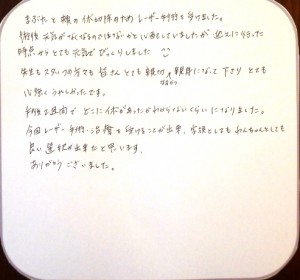 まぶたと頬の休切除のためレーザー手術を受けました。
術後元気がなくなるのではないかと心配していましたが迎えに行った
時点からとても元気でびっくりしました
先生もスタッフの方々も皆さんとても親切で親身になって下さりとても
心強くうれしかったです。
手術2週間でどこに休があったかわからないくらいになりました。
今回レーザー手術に治療を受けることが出来、家族としてもわんちゃんとしても
良い選択が出来たと思います。
ありがとうございました。